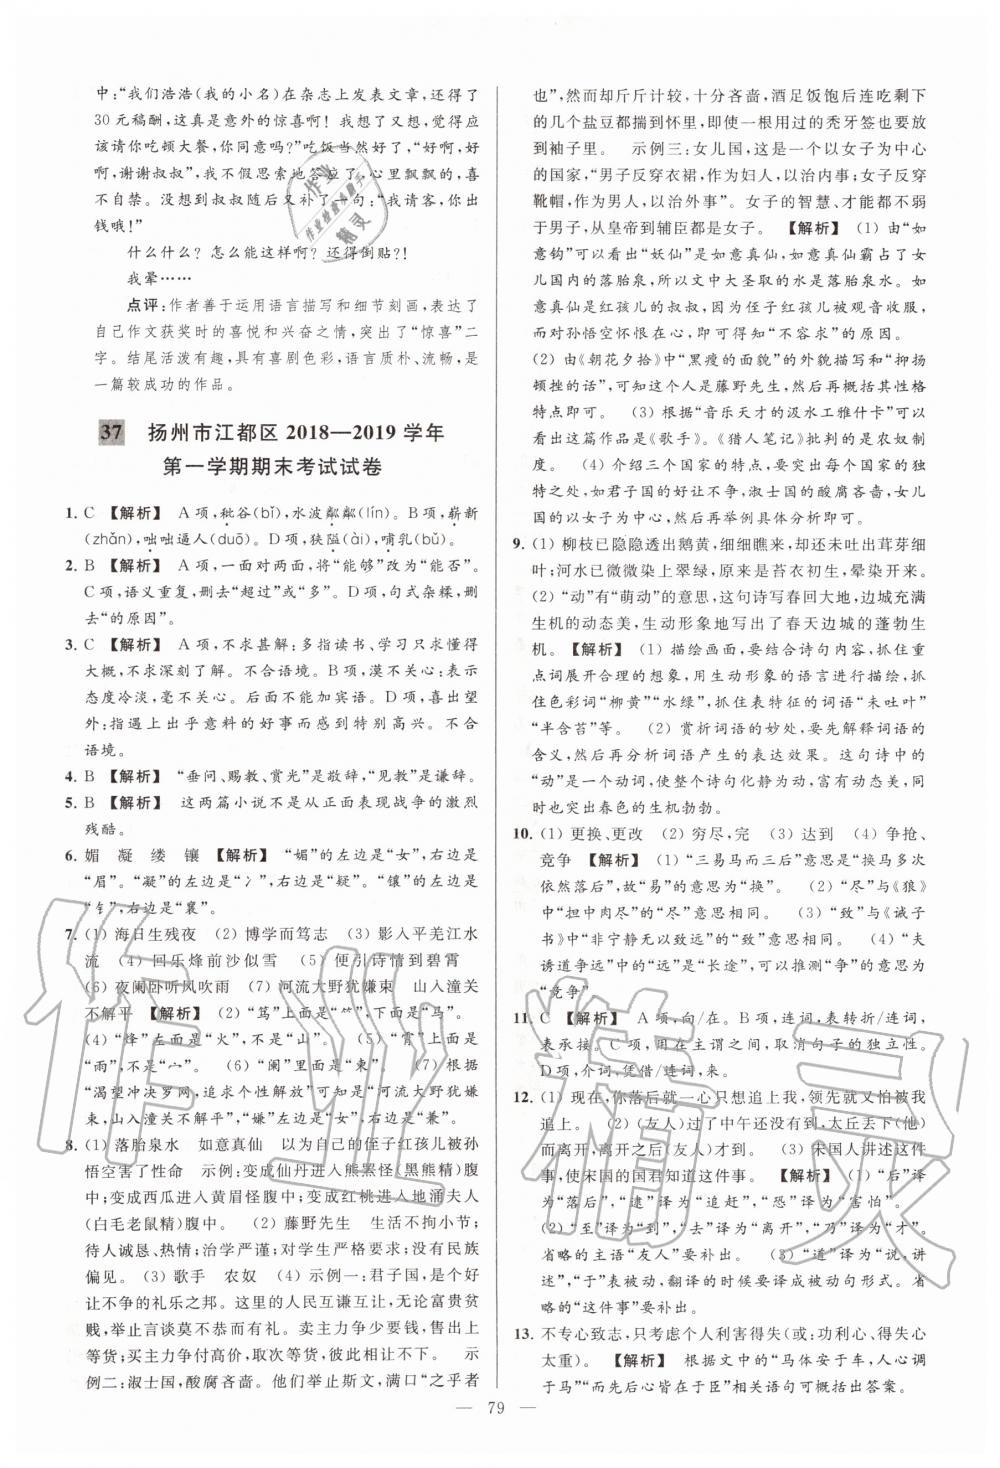 中:“我们浩浩(我的小名)在杂志上发表文章,还得了
30元稿酬,这真是意外的惊喜啊!我想了又想,觉得应
该请你吃顿大餐,你同意吗?”吃饭当然好!“好啊,好啊,
谢谢叔叔”,我不假思索地应了,心里飘飘的,感
觉挺爽。没想到叔叔随后又补了一句:“我请客,你出
钱哦!”
什么什么?怎么能这样啊?还得倒贴?!
我晕……
点评:作者善于运用语言描写和细节刻画,表达了
自己作文获奖时的喜悦和兴奋之情,突出了“惊喜”二
字。结尾活泼有趣,具有喜剧色彩,语言质朴、流畅,是
一篇较成功的作品。
37 扬州市江都区2018—2019学年
第一学期期末考试试卷
1. C 【解析】 A项,秕谷(bǐ),水波粼粼(lín)。B项,崭新
(zhǎn),咄咄逼人(duō)。D项,狭隘(ài),哺乳(bǔ)。
2. B 【解析】 A项,一面对两面,将“能够”改为“能否”。
C项,语义重复,删去“超过”或“多”。D项,句式杂糅,删
去“的原因”。
3. C 【解析】 A项,不求甚解:多指读书、学习只求懂得
大概,不求深刻了解。不合语境。B项,漠不关心:表示
态度冷淡,毫不关心。后面不能加宾语。D项,喜出望
外:指遇上出乎意料的好事而感到特别高兴。不合
语境。
4. B 【解析】 “垂问、赐教、赏光”是敬辞,“见教”是谦辞。
5. B 【解析】 这两篇小说不是从正面表现战争的激烈
残酷。
6. 媚 凝 缕 镶 【解析】 “媚”的左边是“女”,右边是
“眉”。“凝”的左边是“冫”,右边是“疑”。“镶”的左边是
“钅”,右边是“襄”。
7. (1) 海日生残夜 (2) 博学而笃志 (3) 影入平羌江水
流 (4) 回乐烽前沙似雪 (5) 便引诗情到碧霄
(6) 夜阑卧听风吹雨 (7) 河流大野犹嫌束 山入潼关
不解平 【解析】 (2)“笃”上面是“⺮”,下面是“马”。
(4)“烽”左面是“火”,不是“山”。 (5)“霄”上面是
“雨”,不是“宀”。 (6)“阑”里面是“柬”。 (7) 根据
“渴望冲决罗网,追求个性解放”可知是“河流大野犹嫌
束,山入潼关不解平”,“嫌”左边是“女”,右边是“兼”。
8. (1) 落胎泉水 如意真仙 以为自己的侄子红孩儿被孙
悟空害了性命 示例:变成仙丹进入熊罴怪(黑熊精)腹
中;变成西瓜进入黄眉怪腹中;变成红桃进入地涌夫人
(白毛老鼠精)腹中。 (2) 藤野先生 生活不拘小节;
待人诚恳、热情;治学严谨;对学生严格要求;没有民族
偏见。 (3) 歌手 农奴 (4) 示例一:君子国,是个好
让不争的礼乐之邦。这里的人民互谦互让,无论富贵贫
贱,举止言谈莫不恭而有礼。卖主力争少要钱,售出上
等货;买主力争付高价,取次等货,彼此相让不下。 示
例二:淑士国,酸腐吝啬。他们举止斯文,满口“之乎者
也”,然而却斤斤计较,十分吝啬,酒足饭饱后连吃剩下
的几个盐豆都揣到怀里,即使一根用过的秃牙签也要放
到袖子里。 示例三:女儿国,这是一个以女子为中心
的国家,“男子反穿衣裙,作为妇人,以治内事;女子反穿
靴帽,作为男人,以治外事”。女子的智慧、才能都不弱
于男子,从皇帝到辅臣都是女子。 【解析】 (1) 由“如
意钩”可以看出“妖仙”是如意真仙,如意真仙霸占了女
儿国内的落胎泉,所以文中大圣取的水是落胎泉水。如
意真仙是红孩儿的叔叔,因为侄子红孩儿被观音收服,
而对孙悟空怀恨在心,即可得知“不容求”的原因。
(2) 由《朝花夕拾》中“黑瘦的面貌”的外貌描写和“抑扬
顿挫的话”的描写,可知这个人是藤野先生,然后再概括其性格
特点即可。 (3) 根据“音乐天才的汲水工雅什卡”可以
知道是《歌手》。《猎人笔记》批判的是俄国的农奴制
度。 (4) 介绍三个国家的特点,要突出这个国家的独
特之处,如君子国的好让不争,淑士国的酸腐吝啬,女儿
国的以女子为中心,然后再举例具体分析即可。
9. (1) 柳枝已隐隐透出鹅黄,细细瞧来,却还未吐出茸芽细
叶;河水已微微染上翠绿,好像是苔衣初生,晕染开来。
(2)“动”有“萌动”的意思,这句诗写春回大地,边城充满
生机的动态美,生动形象地写出了春天边城的蓬勃生
机。 【解析】 (1) 描绘画面,要结合诗句内容,抓住重
点词展开合理的想象,用生动形象的语言进行描绘,抓
住色彩词“柳黄”“水绿”,抓住具有特征的词语“未吐叶”
“半含苔”等。 (2) 赏析词语的妙处,要先解释词语的
含义,然后再分析词语产生的表达效果。这句诗中的
“动”是一个动词,使整个诗句化静为动,富有动态美,同
时也突出春色的生机勃勃。
10. (1) 更换、更改 (2) 穷尽,完 (3) 达到 (4) 争抢、
竞争 【解析】 (1)“三易马而三后”意思是“换马多次
都落后”,故“易”的意思为“换”。 (2)“尽”与《狼》
中“担中肉尽”的“尽”意思相同。 (3)“致”与《诫子
书》中“非宁静无以致远”的“致”意思相同。 (4)“夫
诱道争远”中的“远”是“长途”,可以推测“争”的意思为
“竞争”
11. C 【解析】 A项,向/在。B项,连词,表转折/连词,
表承接。C项,用在主谓之间,取消句子的独立性。
D项,介词,凭借/连词,来。
12. (1) 现在,你落后就一心只想追上我,领先就又怕被我
追上。 (2)(友人)过了中午还没有到,太丘丢下(他)
而离开,离开之后(友人)才到。 (3) 宋国人讲述这件
事,使宋国的国君知道这件事。 【解析】 (1)“后”译
为“落后”,“逮”译为“追赶”,“恐”译为“害怕”。
(2)“至”译为“到”,“去”译为“离开”,“乃”译为“才”。
省略的主语“友人”要补出。 (3)“道”译为“说,讲
述”,“于”表被动,翻译的时候要译成被动句形式。省
略的“这件事”要补出。
13. 不专心致志,只考虑个人利害得失(或:功利心、得失心
太重)。 【解析】 根据文中的“马体安于车,人心调
于马”“而先后心皆在于臣”相关语句可概括出答案。
— 79 —